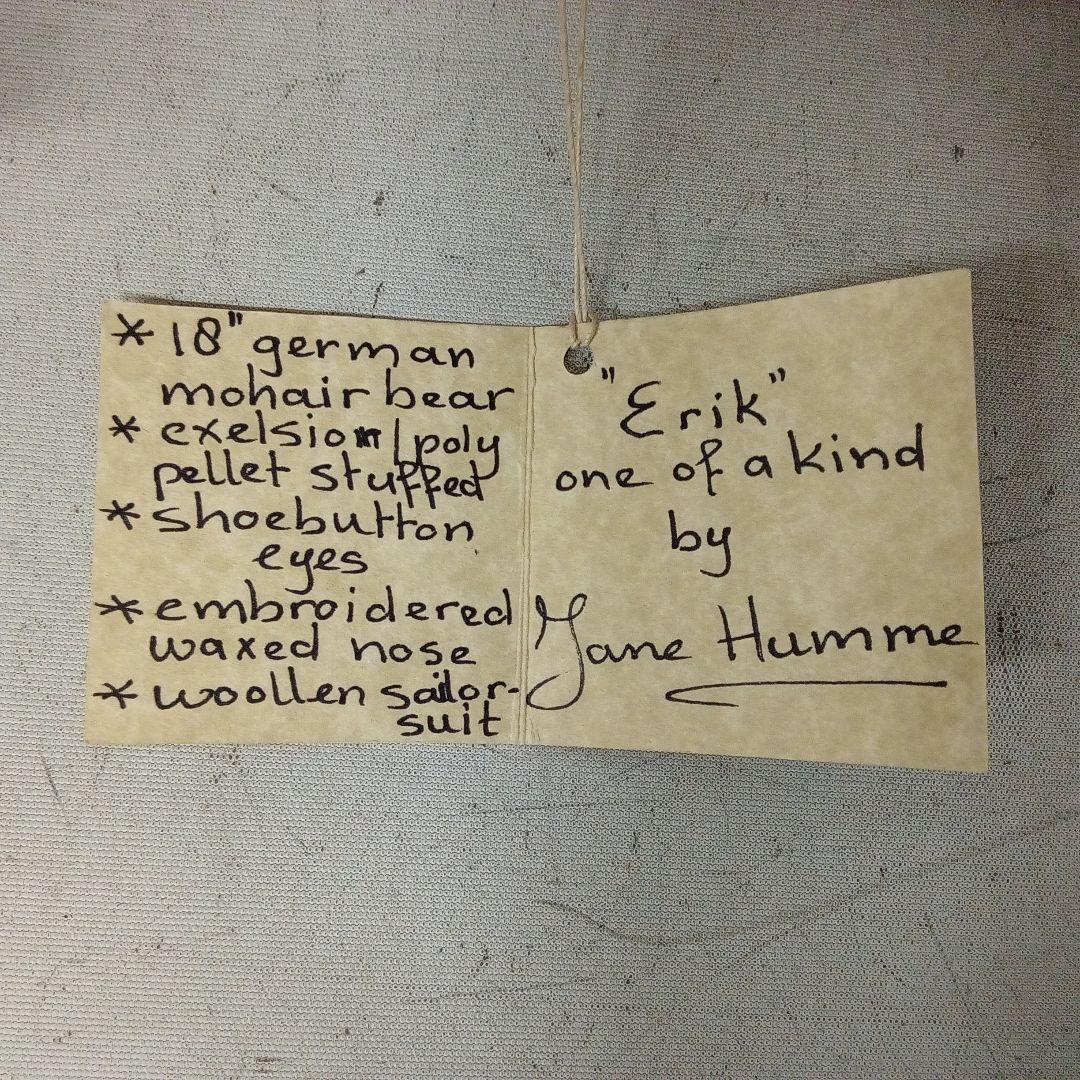 * 18" german
mohair bear
* exelsior/poly
pellet stuffed
* shoebutton
eyes
* embroidered
waxed nose
* woollen sailor-
suit
"Erik"
one of a kind
by
Jane Humme